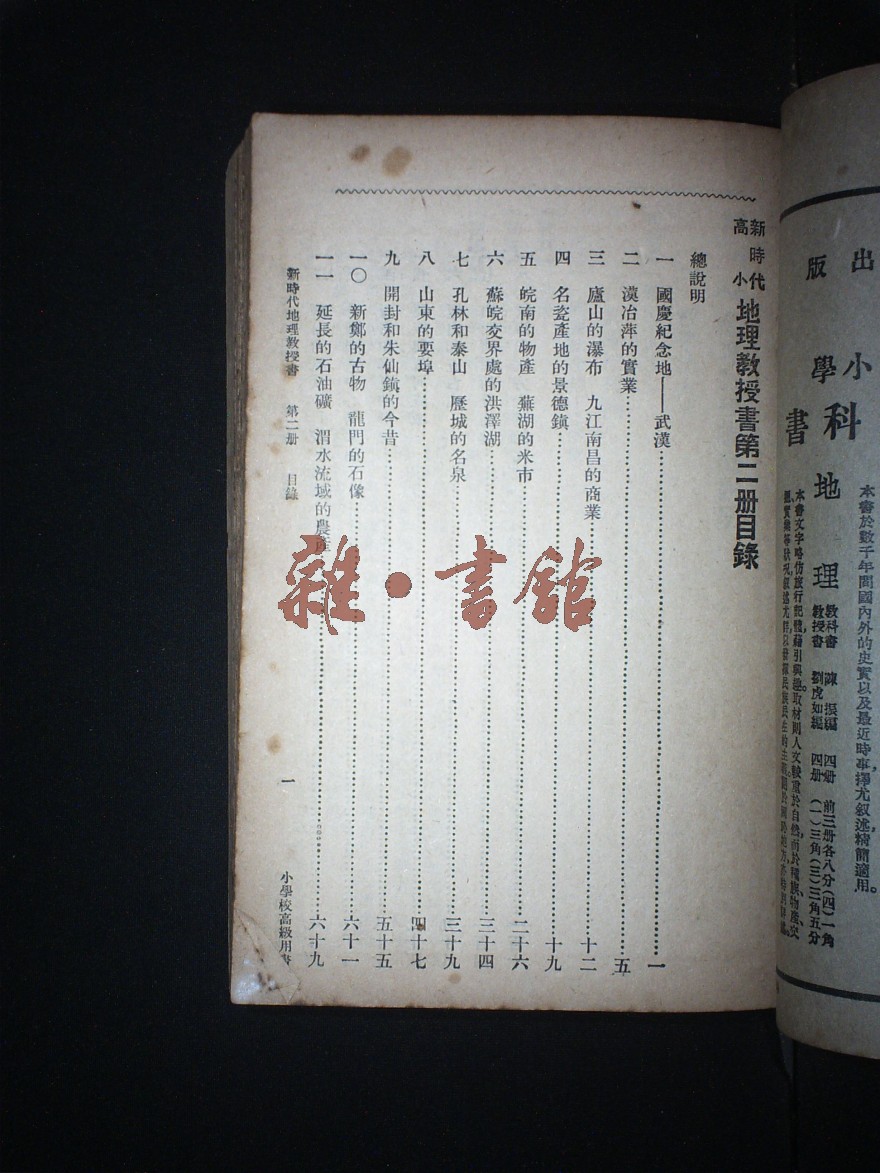 出版
小學
科書
地理
教科書 陳振編 四册 前三册各八分(四)一角
教授書 劉虎如編 四册 (一)三角(三)三角五分
本書於數千年間國內外的史實以及最近時事,擇尤叙述,精簡適用。
新時代高小地理教授書第二册目錄
總說明
一 國慶紀念地——武漢……一
二 漢冶萍的實業……五
三 廬山的瀑布 九江南昌的商業……十二
四 名瓷產地的景德鎮……十九
五 皖南的物產 蕪湖的米市……二十六
六 蘇皖交界處的洪澤湖……三十四
七 孔林和泰山 歷城的名泉……三十九
八 山東的要埠……四十七
九 開封和朱仙鎮的今昔……五十五
一〇 新鄭的古物 龍門的石像……六十一
一一 延長的石油礦 渭水流域的農產……六十九
新時代地理教授書 第二册 目錄 一 小學校高級用書
雜·書館